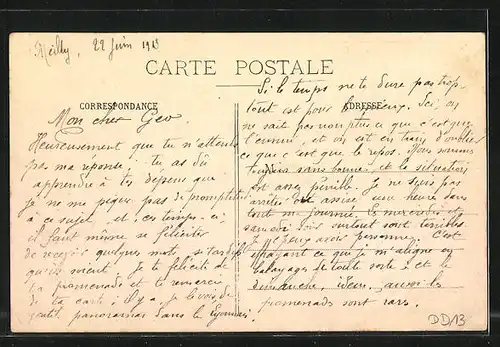 Neilly, 22 Juin 1913
CARTE POSTALE
CORRESPONDANCE
ADRESSE
Mon cher Geo.
Heureusement que tu n'attends
pas ma réponse. tu as dû
apprendre à tes dépens que
je ne me pique pas de promptitude
à ce sujet. et, ces temps-ci,
il faut même se féliciter
de recevoir quelques mots, si tardifs
qu'ils soient. Je te félicite de
ta promenade et te remercie
de ta carte; il y a, je le vois, de
gentils panoramas dans le Lyonnais.
Si le temps ne te dure pas trop,
tout est pour le mieux. Ici, on
ne sait pas non plus ce que c'est que
l'ennui, et on est en train d'oublier
ce que c'est que le repos. Nous sommes
toujours sans bonne, et la situation
est assez pénible. Je ne suis pas
arrêtée, ou assise, une heure dans
toute ma journée. le mercredi et
samedi surtout sont terribles.
Je n'ai personne. C'est
effrayant ce que je m'aligne en
balayages de toute sorte; et le
dimanche, idem, aussi les
promenades sont rares.
DD/13